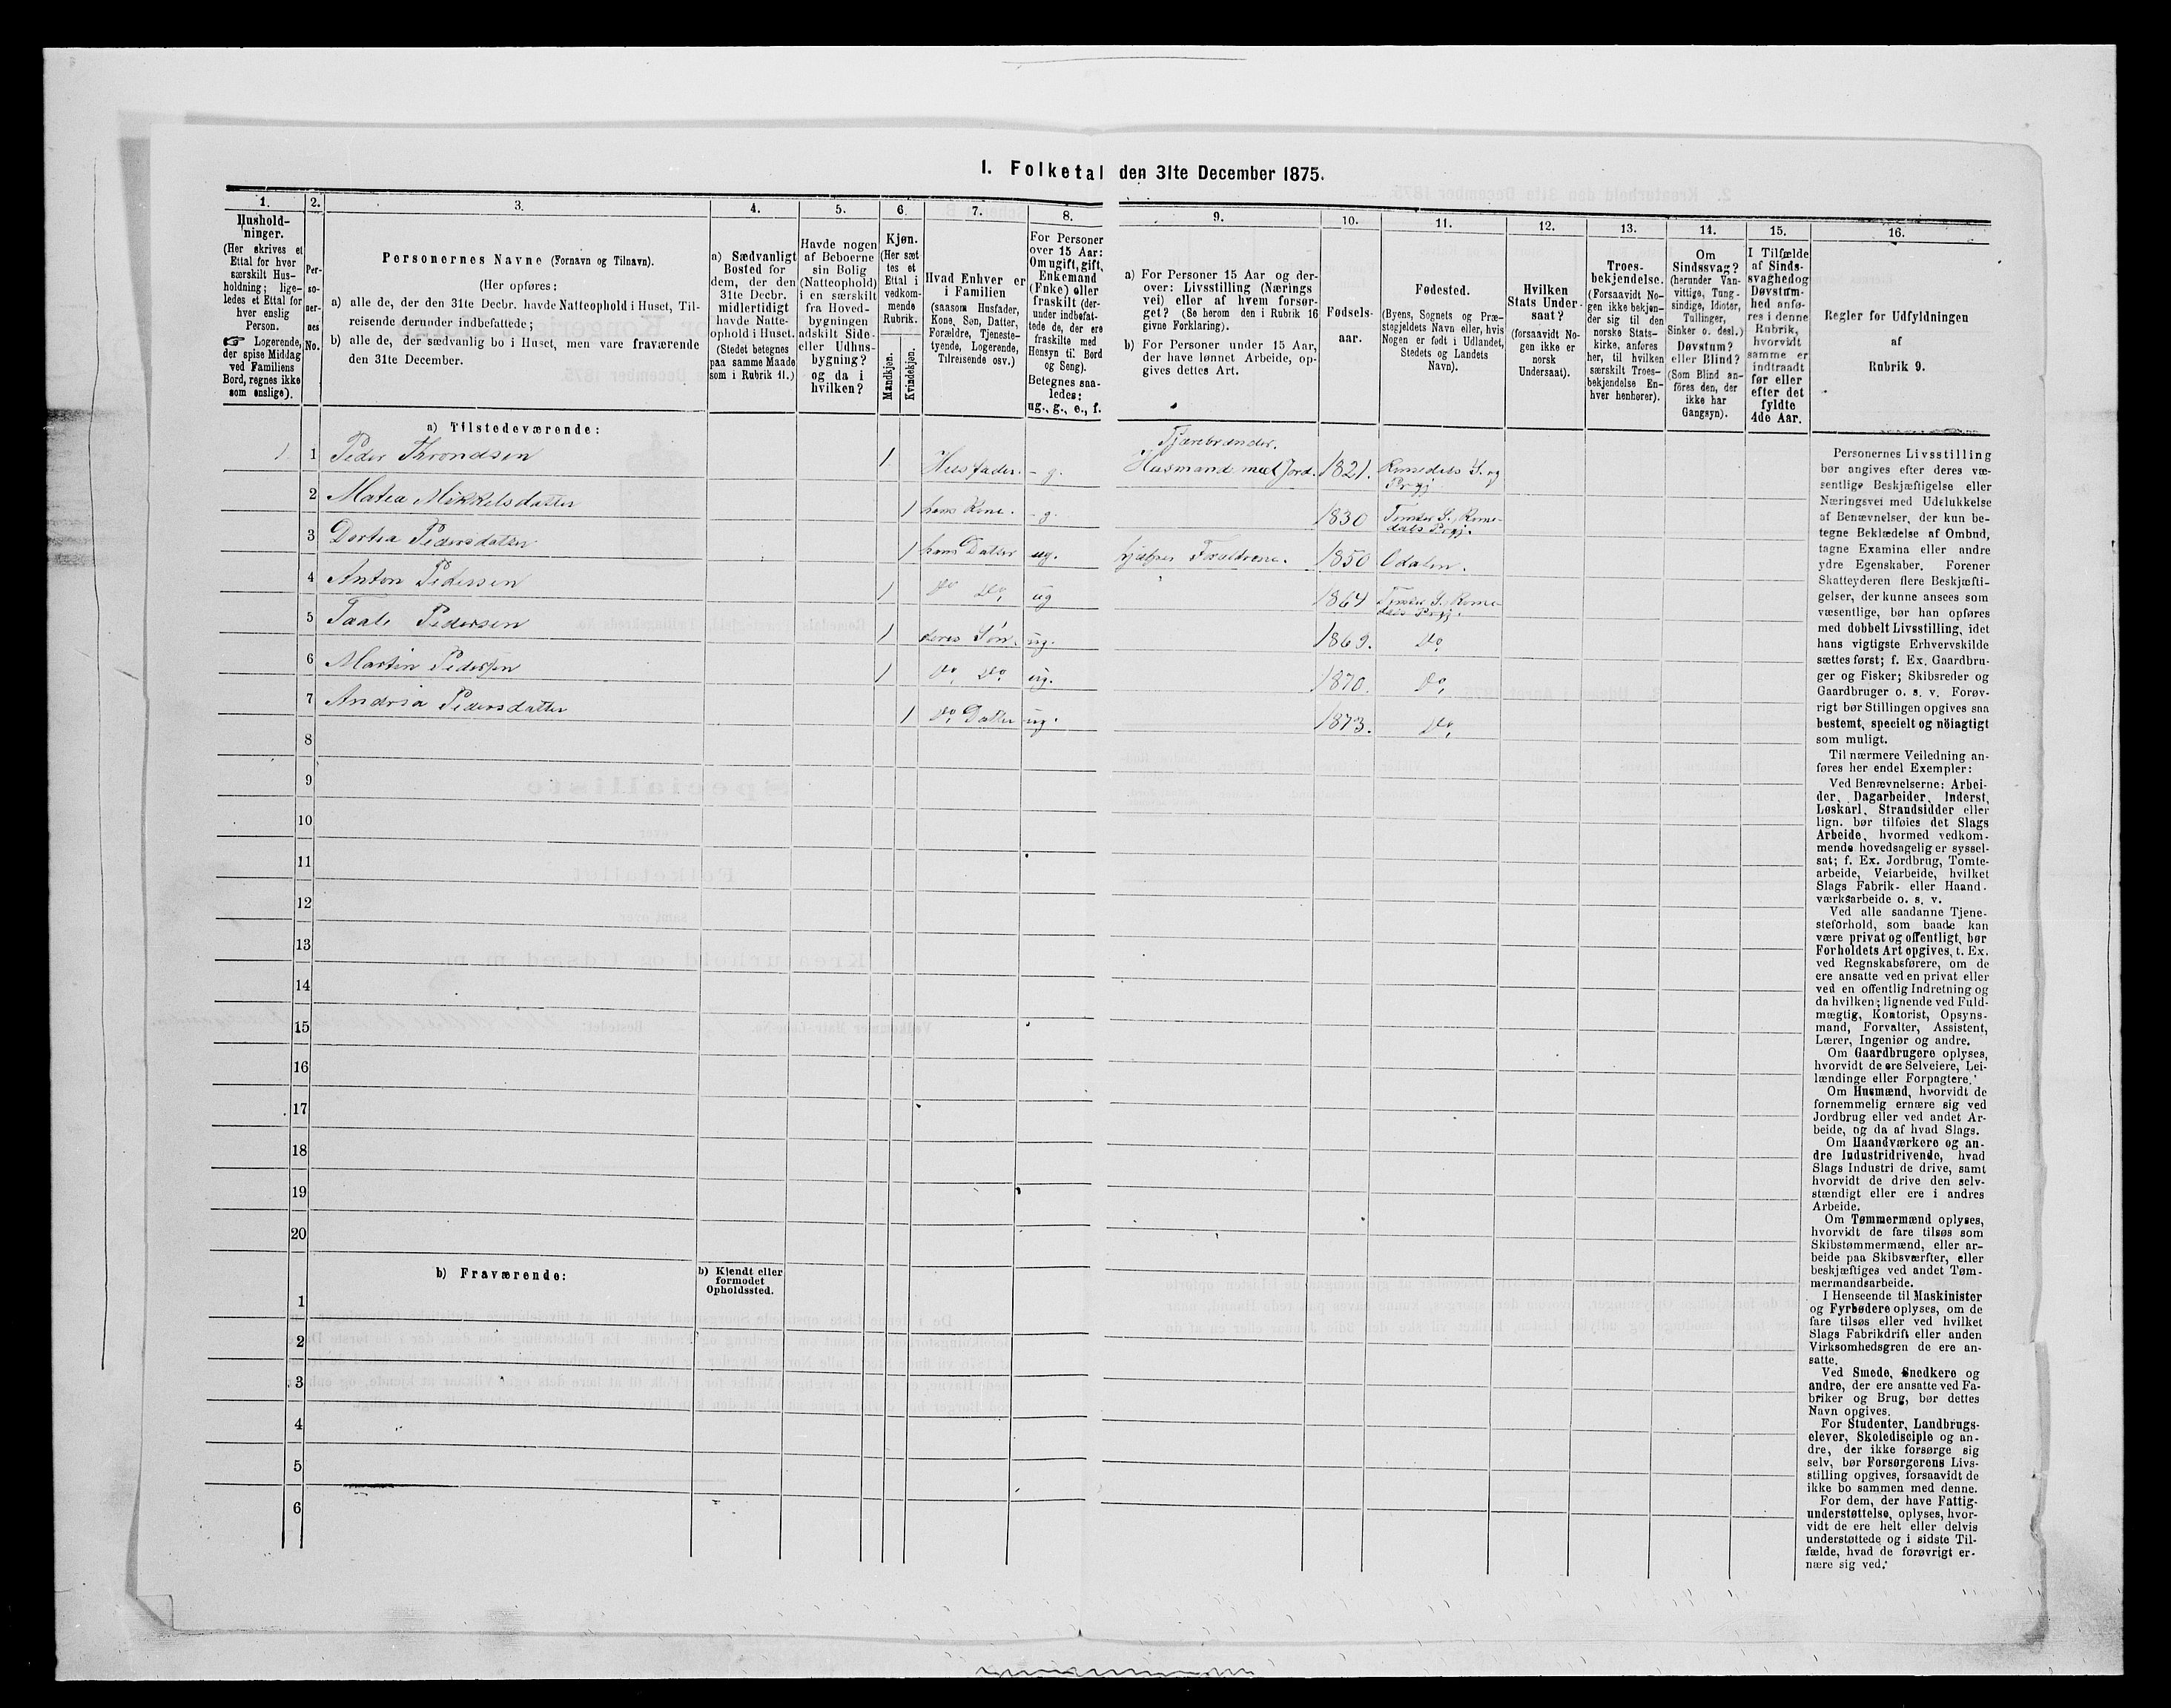 I. Folketal den 31te December 1875.
1.
Hushold-
ninger.
(Her skrives et
Ettal for hver
særskilt Hus-
holdning; lige-
ledes et Ettal for
hver enslig
Person.
☞ Logerende,
der spise Middag
ved Familiens
Bord, regnes ikke
som enslige).
2.
Per-
so-
ner-
nes
No.
3.
Personernes Navne (Fornavn og Tilnavn).
(Her opføres:
a) alle de, der den 31te Decbr. havde Natteophold i Huset, Til-
reisende derunder indbefattede;
b) alle de, der sædvanlig bo i Huset, men vare fraværende
den 31te December.
4.
a) Sædvanligt
Bosted for
dem, der den
31te Decbr.
midlertidigt
havde Natte-
ophold i Huset.
(Stedet betegnes
paa samme Maade
som i Rubrik 11.)
5.
Havde nogen
af Beboerne
sin Bolig
(Natteophold)
i en særskilt
fra Hoved-
bygningen
adskilt Side-
eller Udhus-
bygning?
og da i
hvilken?
6.
Kjøn.
(Her sæt
tes et
Ettal i
vedkom-
mende
Rubrik.
Mandkjøn.
Kvindekjøn.
7.
Hvad Enhver er
i Familien
(saasom Husfader,
Kone, Søn, Datter,
Forældre, Tjeneste-
tyende, Logerende,
Tilreisende osv.)
8.
For Personer
over 15 Aar:
Om ugift, gift,
Enkemand
(Enke) eller
fraskilt (der-
under indbefat-
tede de, der ere
fraskilte med
Hensyn til Bord
og Seng).
Betegnes saa-
ledes:
ug., g., e., f.
9.
a) For Personer 15 Aar og der-
over: Livsstilling (Nærings
vei) eller af hvem forsør-
get? (Se herom den i Rubrik 16
givne Forklaring).
b) For Personer under 15 Aar,
der have lønnet Arbeide, op-
gives dettes Art.
10.
Fødsels-
aar.
11.
Fødested.
(Byens, Sognets og Præ-
stegjeldets Navn eller, hvis
Nogen er født i Udlandet,
Stedets og Landets
Navn).
12.
Hvilken
Stats Under-
saat?
(forsaavidt No-
gen ikke er
norsk
Undersaat).
13.
Troes-
bekjendelse.
(Forsaavidt No-
gen ikke bekjen-
der sig til den
norske Stats-
kirke, anføres
her, til hvilken
særskilt Troes-
bekjendelse En-
hver henhører).
14.
Om
Sindssvag?
(herunder Van-
vittige, Tung-
sindige, Idioter,
Tullinger,
Sinker o. desl.)
Døvstum?
eller Blind?
(Som Blind an-
føres den, der
ikke har
Gangsyn).
15.
I Tilfælde
af Sinds-
svaghed og
Døvstum-
hed anfø-
res i denne
Rubrik,
hvorvidt
samme er
indtraadt
før eller
efter det
fyldte
4de Aar.
16.
Regler for Udfyldningen
af
Rubrik 9.
a) Tilstedeværende:
Tjærebrænder.
1 1 Peder Throndsen 1 Husfader. - g. Husmand med Jord. 1821. Romedals S. og
Prgj.
2 Matea Mikkelsdatter 1 hans Kone. - g. 1830 Tomter S., Rome-
dals Prgj.
3 Dortea Pedersdatter 1 hans Datter ug. hjælper Forældrene. 1850 Odalen.
4 Anton Pedersen 1 Do Do, ug 1864 Tomter S. Rome-
dals Prgj.
5 Taale Pedersen 1 deres Søn. ug. 1869. Do,
6 Martin Pedersen 1 Do, Do, ug. 1870. Do,
7 Andrea Pedersdatter 1 Do, Datter ug. 1873. Do,
8
9
10
11
12
13
14
15
16
17
18
19
20
b) Fraværende:
b) Kjendt eller
formodet
Opholdssted.
1
2
3
4
5
6
Personernes Livsstilling
bør angives efter deres væ-
sentlige Beskjæftigelse eller
Næringsvei med Udelukkelse
af Benævnelser, der kun be-
tegne Beklædelse af Ombud,
tagne Examina eller andre
ydre Egenskaber. Forener
Skatteyderen flere Beskjæfti-
gelser, der kunne ansees som
væsentlige, bør han opføres
med dobbelt Livsstilling, idet
hans vigtigste Erhvervskilde
sættes først; f. Ex. Gaardbru-
ger og Fisker; Skibsreder og
Gaardbruger o. s. v. Forøv-
rigt bør Stillingen opgives saa
bestemt, specielt og nöiagtigt
som muligt.
Til nærmere Veiledning an-
føres her endel Exempler:
Ved Benævnelserne: Arbei-
der, Dagarbeider, Inderst,
Løskarl, Strandsidder eller
lign. bør tilføies det Slags
Arbeide, hvormed vedkom-
mende hovedsagelig er syssel-
sat; f. Ex. Jordbrug, Tomte-
arbeide, Veiarbeide, hvilket
Slags Fabrik- eller Haand-
værksarbeide o. s. v.
Ved alle saadanne Tjene-
steforhold, som baade kan
være privat og offentligt, bør
Forholdets Art opgives, t. Ex.
ved Regnskabsførere, om de
ere ansatte ved en privat eller
ved en offentlig Indretning og
da hvilken; lignende ved Fuld-
mægtig, Kontorist, Opsyns-
mand, Forvalter, Assistent,
Lærer, Ingeniør og andre.
Om Gaardbrugere oplyses,
hvorvidt de ere Selveiere, Lei-
lændinge eller Forpagtere.
Om Husmænd, hvorvidt de
fornemmelig ernære sig ved
Jordbrug eller ved andet Ar-
beide, og da af hvad Slags.
Om Haandværkere og an-
dre Industridrivende, hvad
Slags Industri de drive, samt
hvorvidt de drive den selv-
stændigt eller ere i andres
Arbeide.
Om Tømmermænd oplyses,
hvorvidt de fare tilsøs som
Skibstømmermænd, eller ar-
beide paa Skibsværfter, eller
beskjæftiges ved andet Tøm-
mermandsarbeide.
I Henseende til Maskinister
og Fyrbødere oplyses, om de
fare tilsøs eller ved hvilket
Slags Fabrikdrift eller anden
Virksomhedsgren de ere an-
satte.
Ved Smede, Snedkere og
andre, der ere ansatte ved Fa-
briker og Brug, bør dettes
Navn opgives.
For Studenter, Landbrugs-
elever, Skoledisciple og an-
dre, der ikke forsørge sig
selv, bør Forsørgerens Livs-
stilling opgives, forsaavidt de
ikke bo sammen med denne.
For dem, der have Fattig-
understøttelse, oplyses, hvor-
vidt de ere helt eller delvis
understøttede og i sidste Til-
fælde, hvad de forøvrigt er-
nære sig ved.